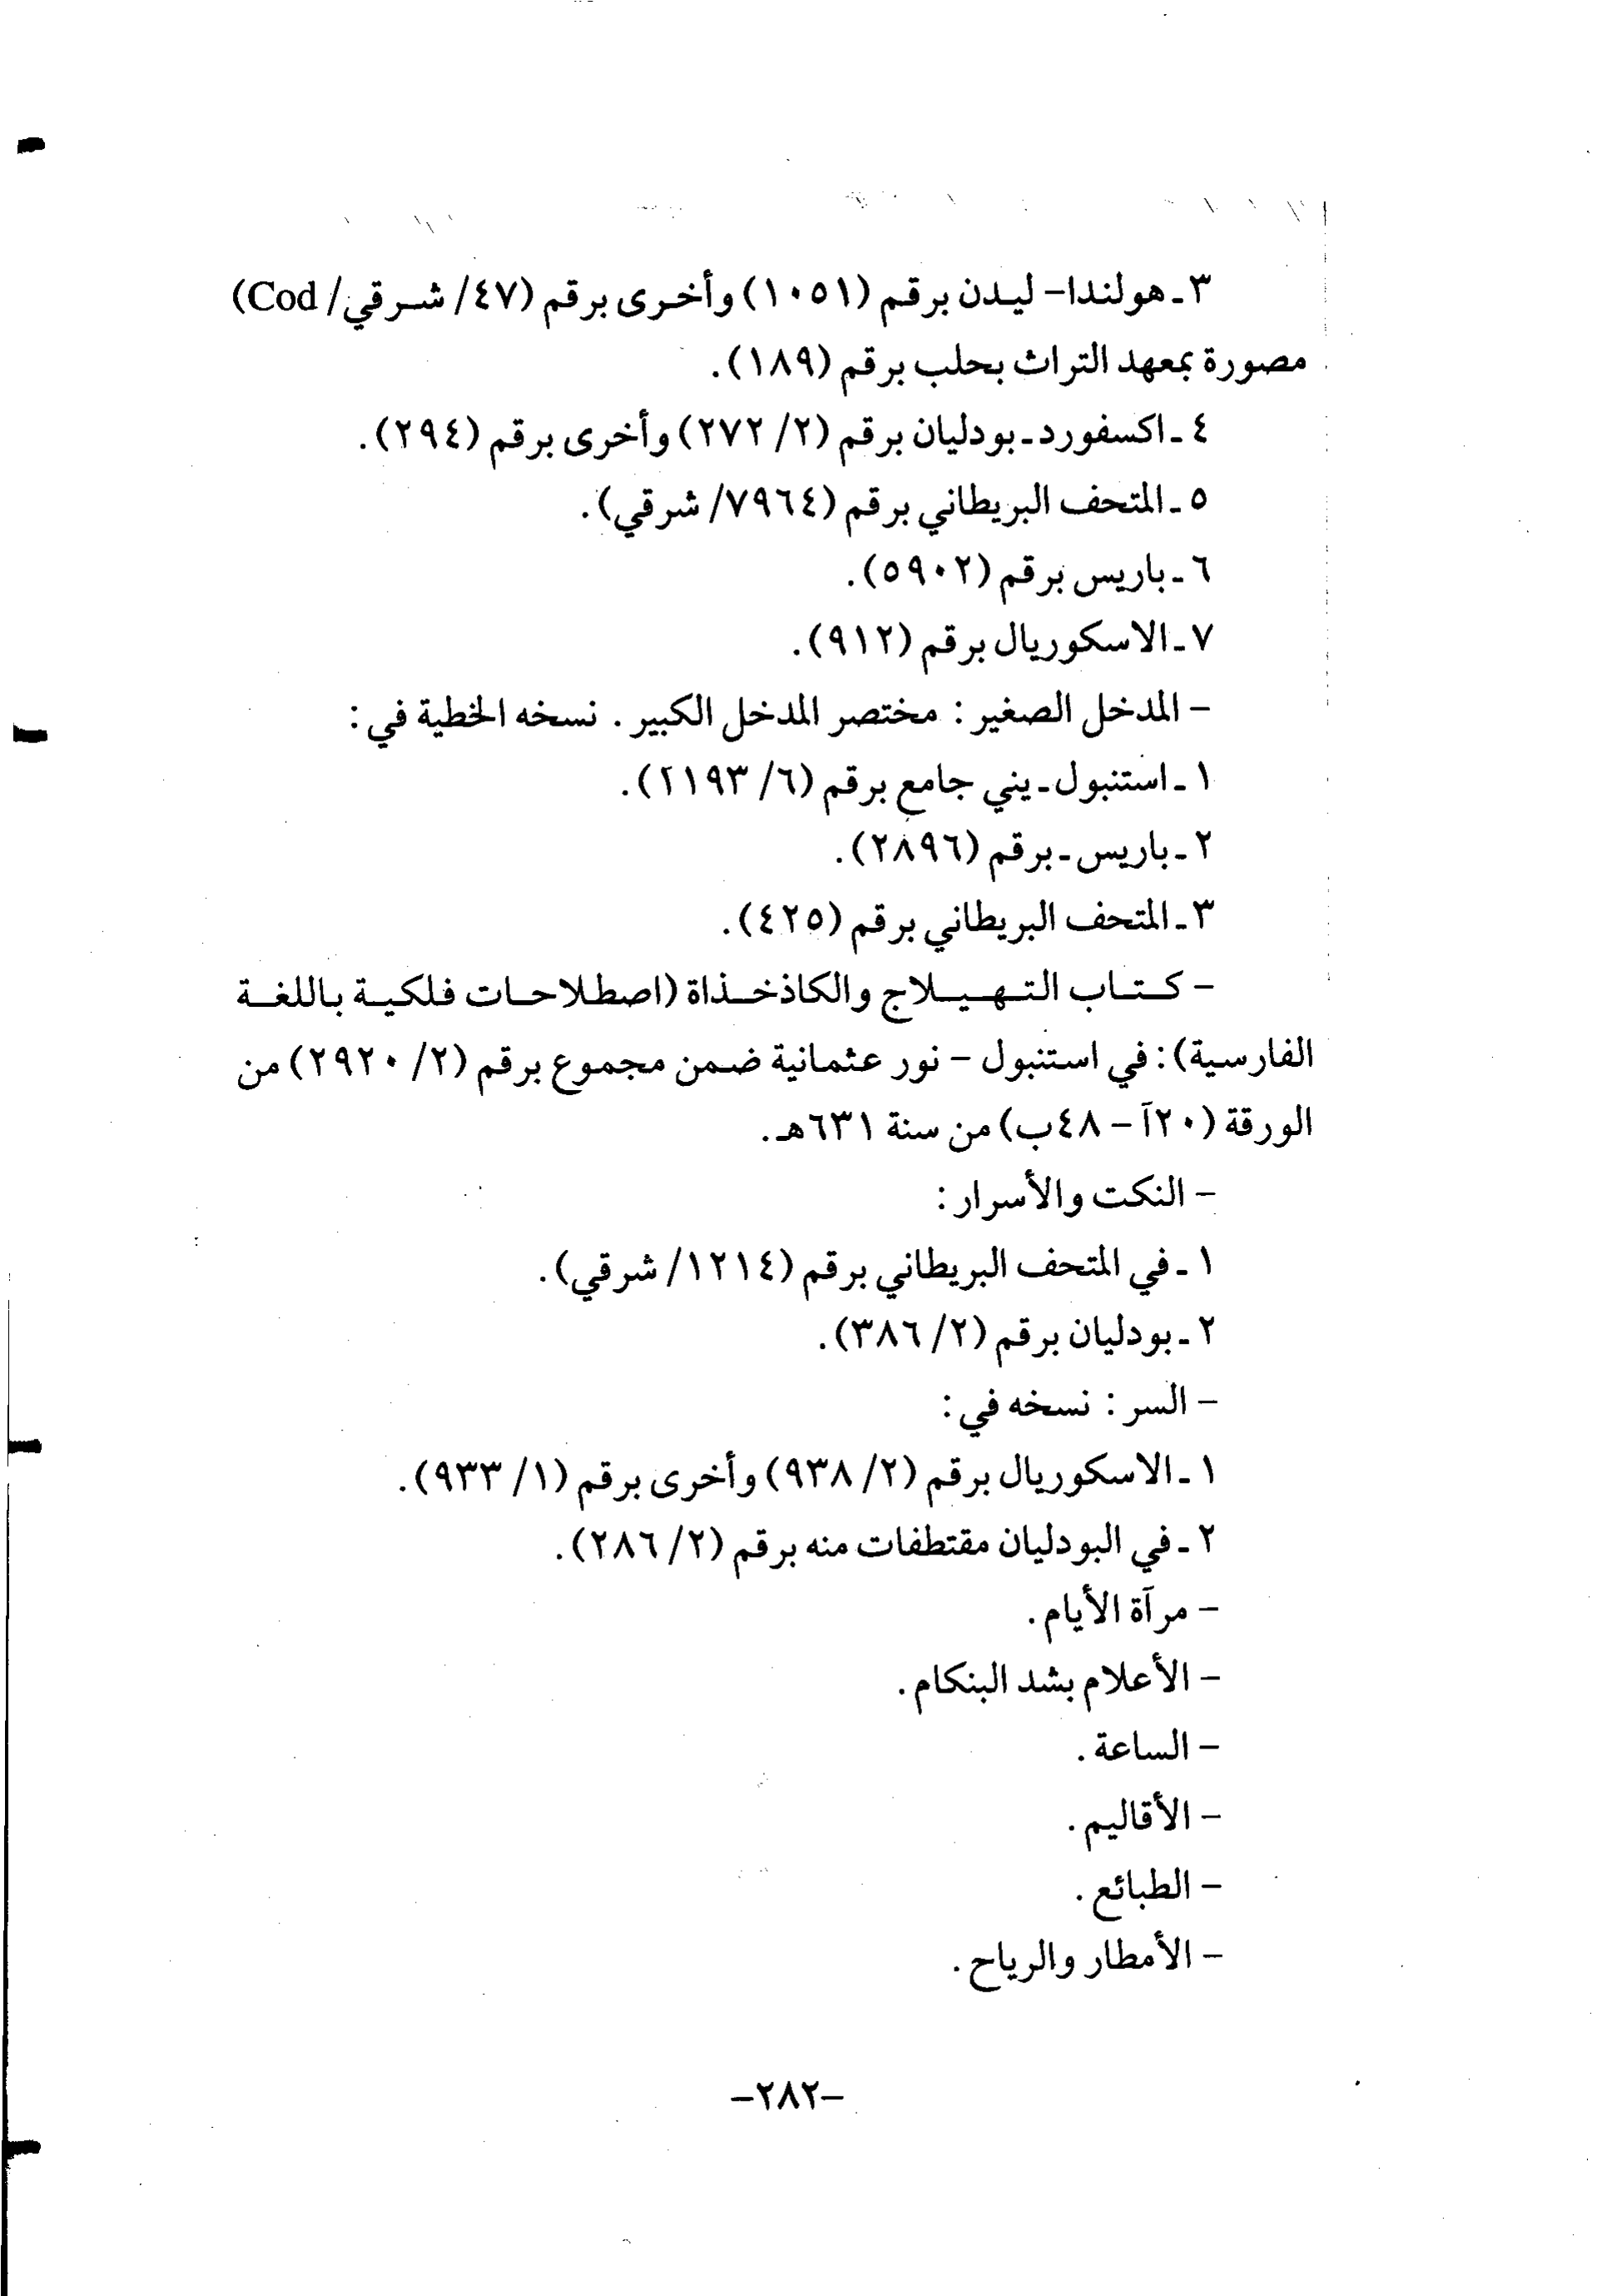 ٣ ـ هولندا – ليدن برقم (١٠٥١) وأخرى برقم (٤٧/ شرقي/ Cod)
مصورة بمعهد التراث بحلب برقم (١٨٩).
٤ ـ اكسفورد ـ بودليان برقم (٢/ ٢٧٢) وأخرى برقم (٢٩٤).
٥ ـ المتحف البريطاني برقم (٧٩٦٤/ شرقي).
٦ ـ باريس برقم (٥٩٠٢).
٧ ـ الاسكوريال برقم (٩١٢).
– المدخل الصغير : مختصر المدخل الكبير . نسخه الخطية في :
١ ـ استنبول ـ يني جامع برقم (٦/ ١١٩٣).
٢ ـ باريس ـ برقم (٢٨٩٦).
٣ ـ المتحف البريطاني برقم (٤٢٥).
– كتاب التهيلاج والكاذخذاة (اصطلاحات فلكية باللغة
الفارسية) : في استنبول – نور عثمانية ضمن مجموع برقم (٢/ ٢٩٢٠) من
الورقة (٢٠آ – ٤٨ب) من سنة ٦٣١هـ.
– النكت والأسرار :
١ ـ في المتحف البريطاني برقم (١٢١٤/ شرقي).
٢ ـ بودليان برقم (٢/ ٣٨٦).
– السر : نسخه في :
١ ـ الاسكوريال برقم (٢/ ٩٣٨) وأخرى برقم (١/ ٩٣٣).
٢ ـ في البودليان مقتطفات منه برقم (٢/ ٢٨٦).
– مرآة الأيام .
– الأعلام بشد البنكام .
– الساعة .
– الأقاليم .
– الطبائع .
– الأمطار والرياح .
–٢٨٢–